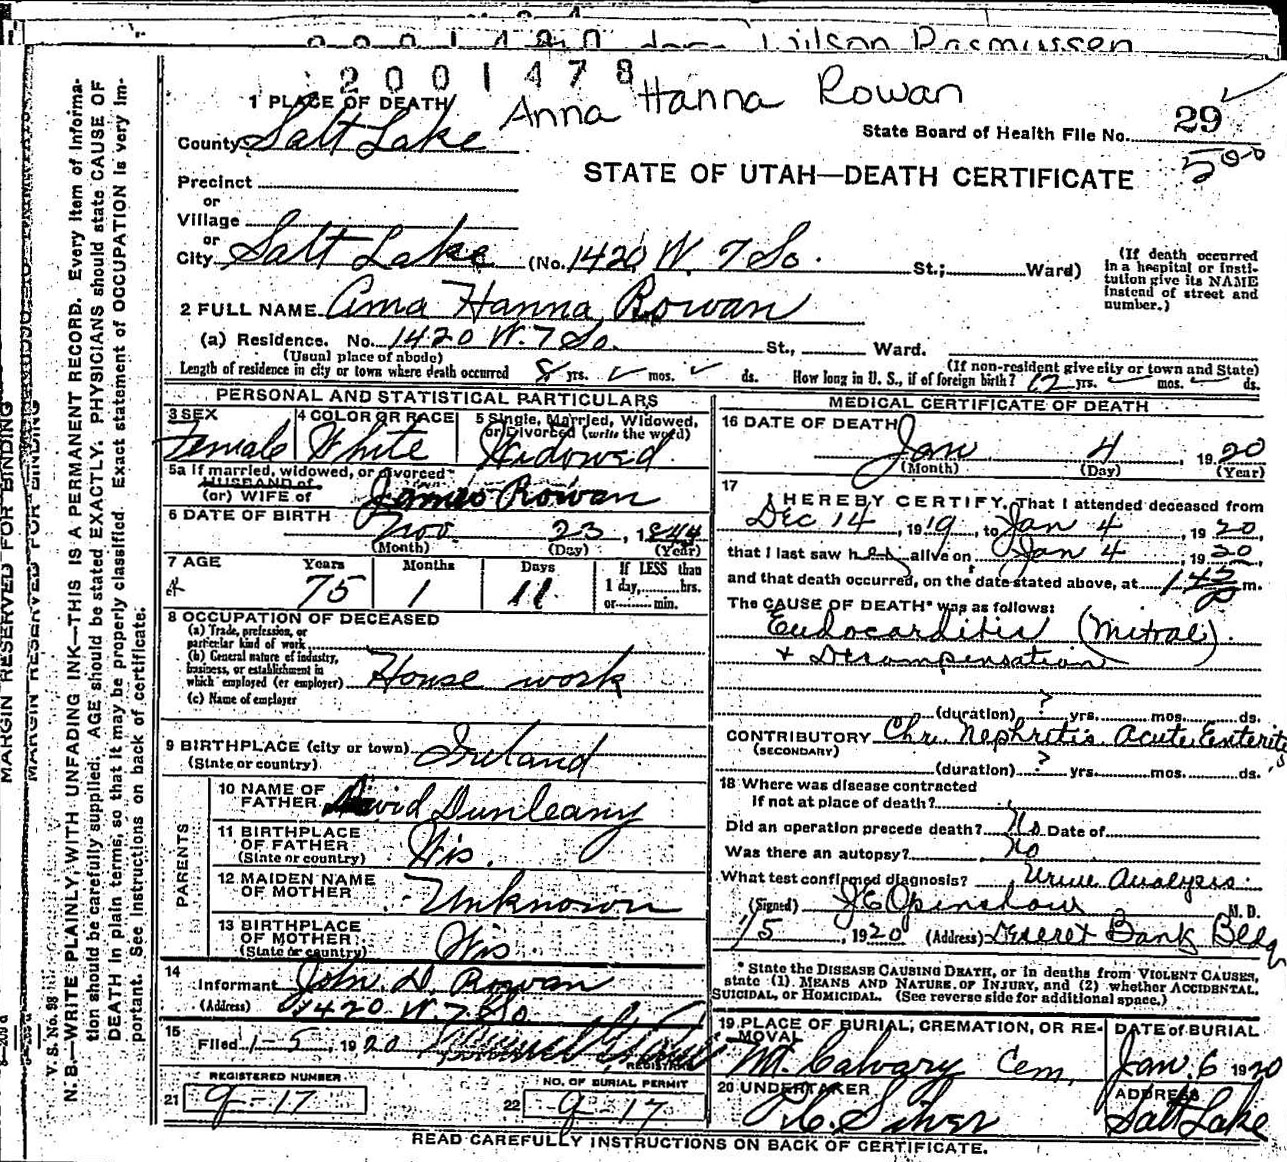 Wilson Rasmussen
2001478
Anna Hanna Rowan
1 PLACE OF DEATH
County Salt Lake
State Board of Health File No. 29
500
Precinct
or
Village
STATE OF UTAH—DEATH CERTIFICATE
or
City Salt Lake (No. 1420 W. 7 So. St.; Ward)
(If death occurred
in a hospital or insti-
tution give its NAME
instead of street and
number.)
2 FULL NAME Anna Hanna Rowan
(a) Residence. No. 1420 W. 7 So. St., Ward.
(Usual place of abode) (If non-resident give city or town and State)
Length of residence in city or town where death occurred 8 yrs. mos. ds. How long in U. S., if of foreign birth? yrs. mos. ds.
PERSONAL AND STATISTICAL PARTICULARS
3 SEX
Female
4 COLOR OR RACE
White
5 Single, Married, Widowed,
or Divorced (write the word)
Widowed
5a If married, widowed, or divorced
HUSBAND of
(or) WIFE of James Rowan
6 DATE OF BIRTH Nov. 23, 1844
(Month) (Day) (Year)
7 AGE Years Months Days If LESS than
1 day, hrs.
or min.
75 1 11
8 OCCUPATION OF DECEASED
(a) Trade, profession, or
particular kind of work
(b) General nature of industry,
business, or establishment in
which employed (or employer) House work
(c) Name of employer
9 BIRTHPLACE (city or town) Ireland
(State or country)
PARENTS
10 NAME OF
FATHER David Dunleany
11 BIRTHPLACE
OF FATHER
(State or country) Wis.
12 MAIDEN NAME
OF MOTHER Unknown
13 BIRTHPLACE
OF MOTHER
(State or country) Wis
14
Informant John D. Rowan
(Address) 1420 W. 7 So
15
Filed 1-5, 1920
REGISTRAR
REGISTERED NUMBER
21 9-17
NO. OF BURIAL PERMIT
22 9-17
MEDICAL CERTIFICATE OF DEATH
16 DATE OF DEATH
Jan 4, 1920
(Month) (Day) (Year)
17
I HEREBY CERTIFY, That I attended deceased from
Dec 14, 1919, to Jan 4, 1920,
that I last saw her alive on Jan 4, 1920,
and that death occurred, on the date stated above, at m.
The CAUSE OF DEATH* was as follows:
Endocarditis (Mitral)
+ Decompensation
(duration) ? yrs. mos. ds.
CONTRIBUTORY Chr. Nephritis Acute Enteritis
(SECONDARY)
(duration) ? yrs. mos. ds.
18 Where was disease contracted
if not at place of death?
Did an operation precede death? No Date of
Was there an autopsy? No
What test confirmed diagnosis? Urine Analysis
(Signed) J E Openshaw M. D.
1/5, 1920 (Address) Deseret Bank Bldg
*State the DISEASE CAUSING DEATH, or in deaths from VIOLENT CAUSES,
state (1) MEANS AND NATURE OF INJURY, and (2) whether ACCIDENTAL,
SUICIDAL, or HOMICIDAL. (See reverse side for additional space.)
19 PLACE OF BURIAL, CREMATION, OR RE-
MOVAL
Mt. Calvary Cem.
DATE of BURIAL
Jan. 6 1920
20 UNDERTAKER
ADDRESS
Salt Lake
READ CAREFULLY INSTRUCTIONS ON BACK OF CERTIFICATE.
MARGIN RESERVED FOR BINDING
MARGIN RESERVED FOR BINDING
V. S. No. 98
N. B.—WRITE PLAINLY, WITH UNFADING INK—THIS IS A PERMANENT RECORD. Every item of informa-
tion should be carefully supplied. AGE should be stated EXACTLY. PHYSICIANS should state CAUSE OF
DEATH in plain terms, so that it may be properly classified. Exact statement of OCCUPATION is very im-
portant. See instructions on back of certificate.